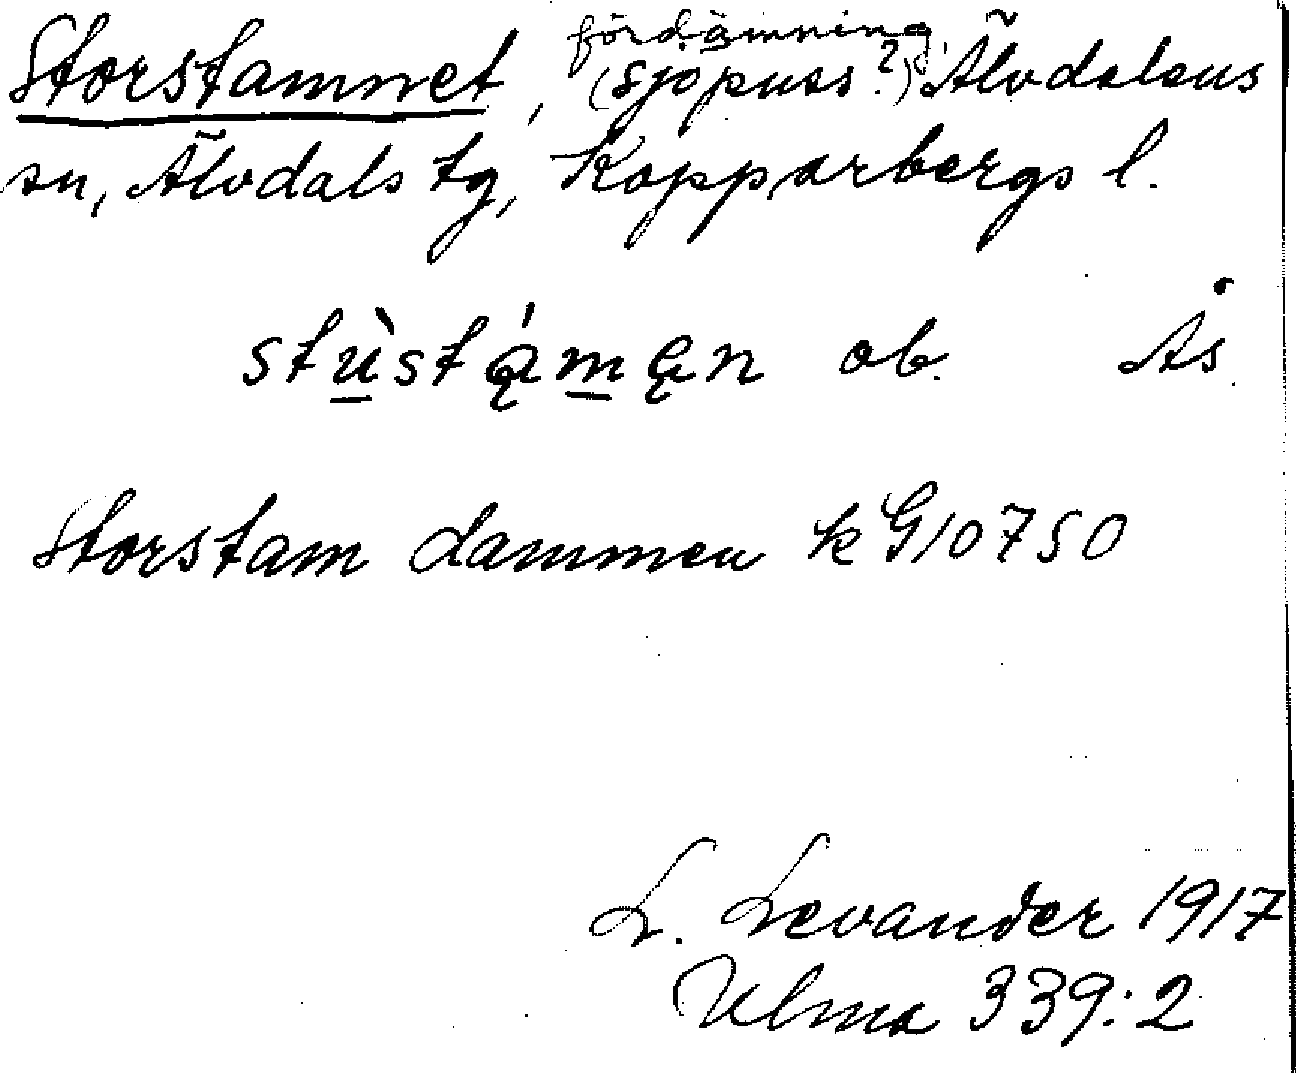 fördämning
Storstamnet, (Sjöpuss?) Älvdalens
sn, Älvdals tg, Kopparbergs l.
stù̲stą́m̲ęn ob. Ås
Storstam dammen k G10750
L. Levander 1917
Ulma 339:2